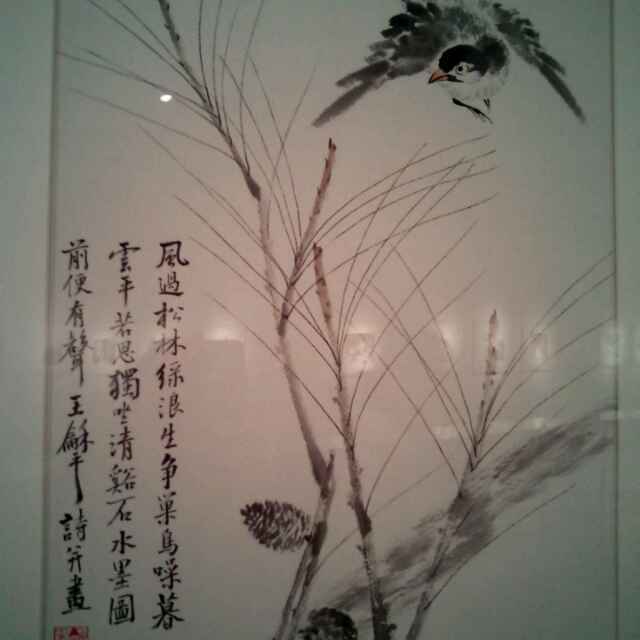 風過松林綠浪生争巢鳥噪暮
雲平若思獨坐清谿石水墨圖
前便有聲王穌平詩并畫